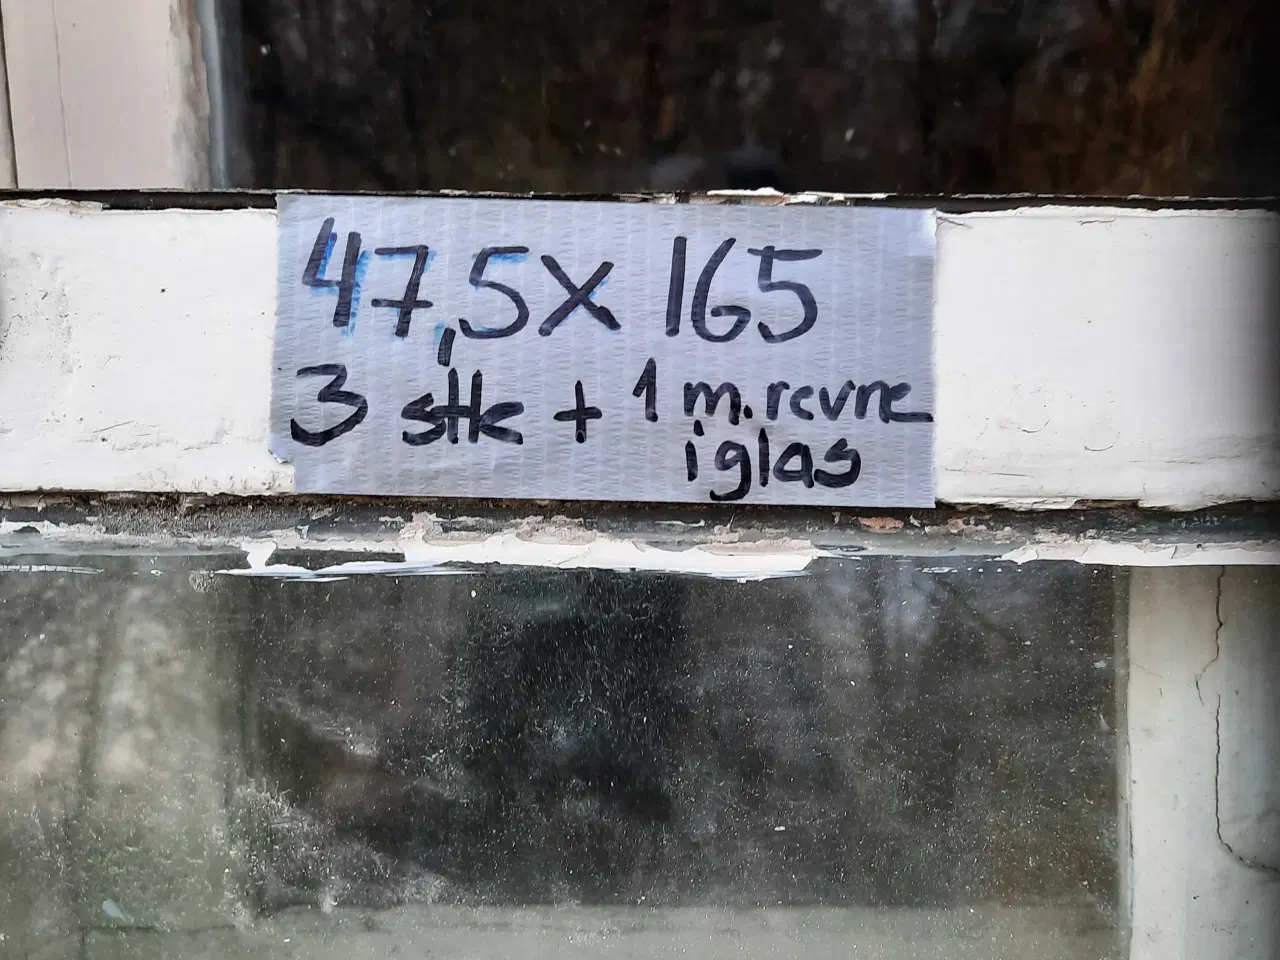 47,5X 165
3 stk + 1 m. revne
i glas